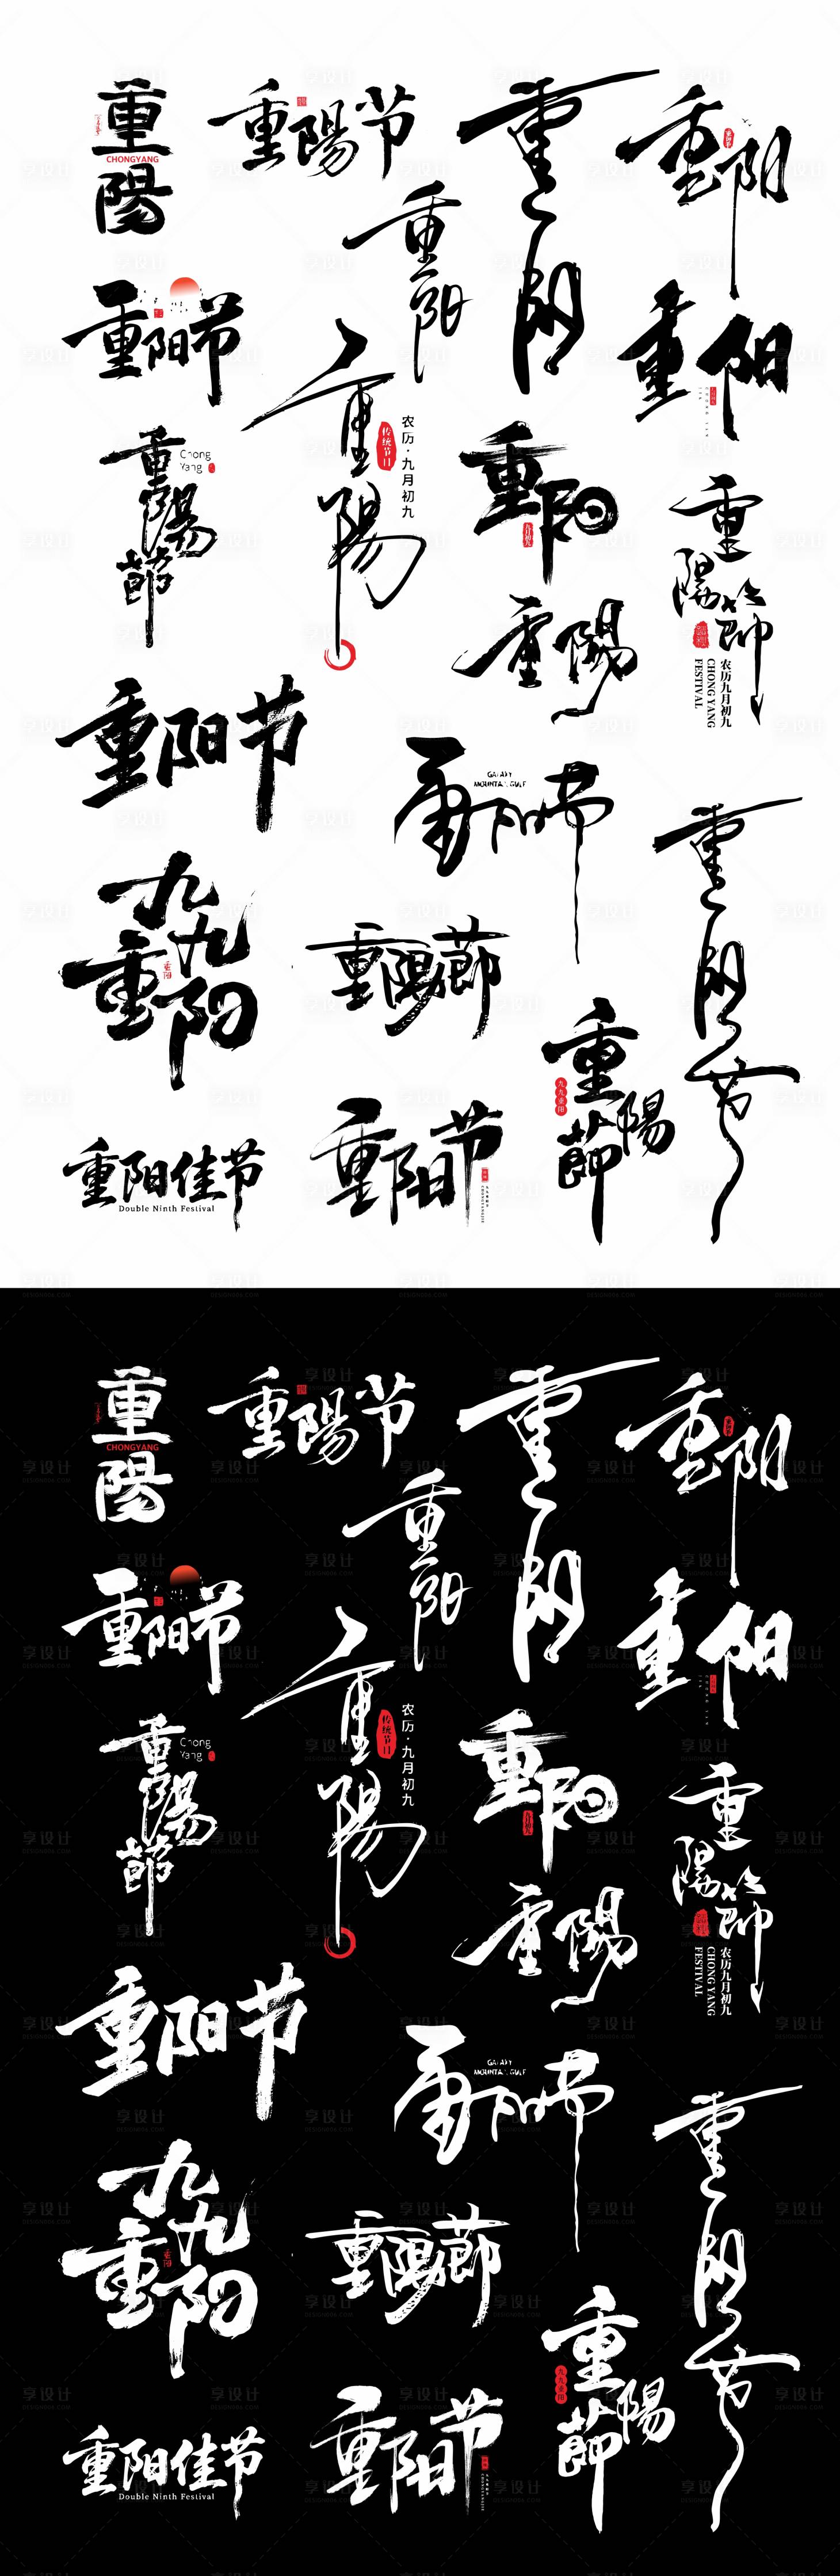 重陽
CHONGYANG
重陽节
重阳
重阳
重阳
重阳节
重陽
传统节日
农历·九月初九
重阳
重陽節
Chong
Yang
重阳
九月初九
重陽節
农历九月初九
CHONG YANG
FESTIVAL
重陽
重阳节
重阳节
GALAXY
MOUNTAIN GULF
重阳节
九九重阳
重阳
重陽節
重陽節
九九重阳
重阳节
重阳佳节
Double Ninth Festival
重陽
CHONGYANG
重陽节
重阳
重阳
重阳
重阳节
重陽
传统节日
农历·九月初九
重阳
重陽節
Chong
Yang
重阳
九月初九
重陽節
农历九月初九
CHONG YANG
FESTIVAL
重陽
重阳节
重阳节
GALAXY
MOUNTAIN GULF
重阳节
九九重阳
重阳
重陽節
重陽節
九九重阳
重阳节
重阳佳节
Double Ninth Festival
享设计
DESIGN006.COM